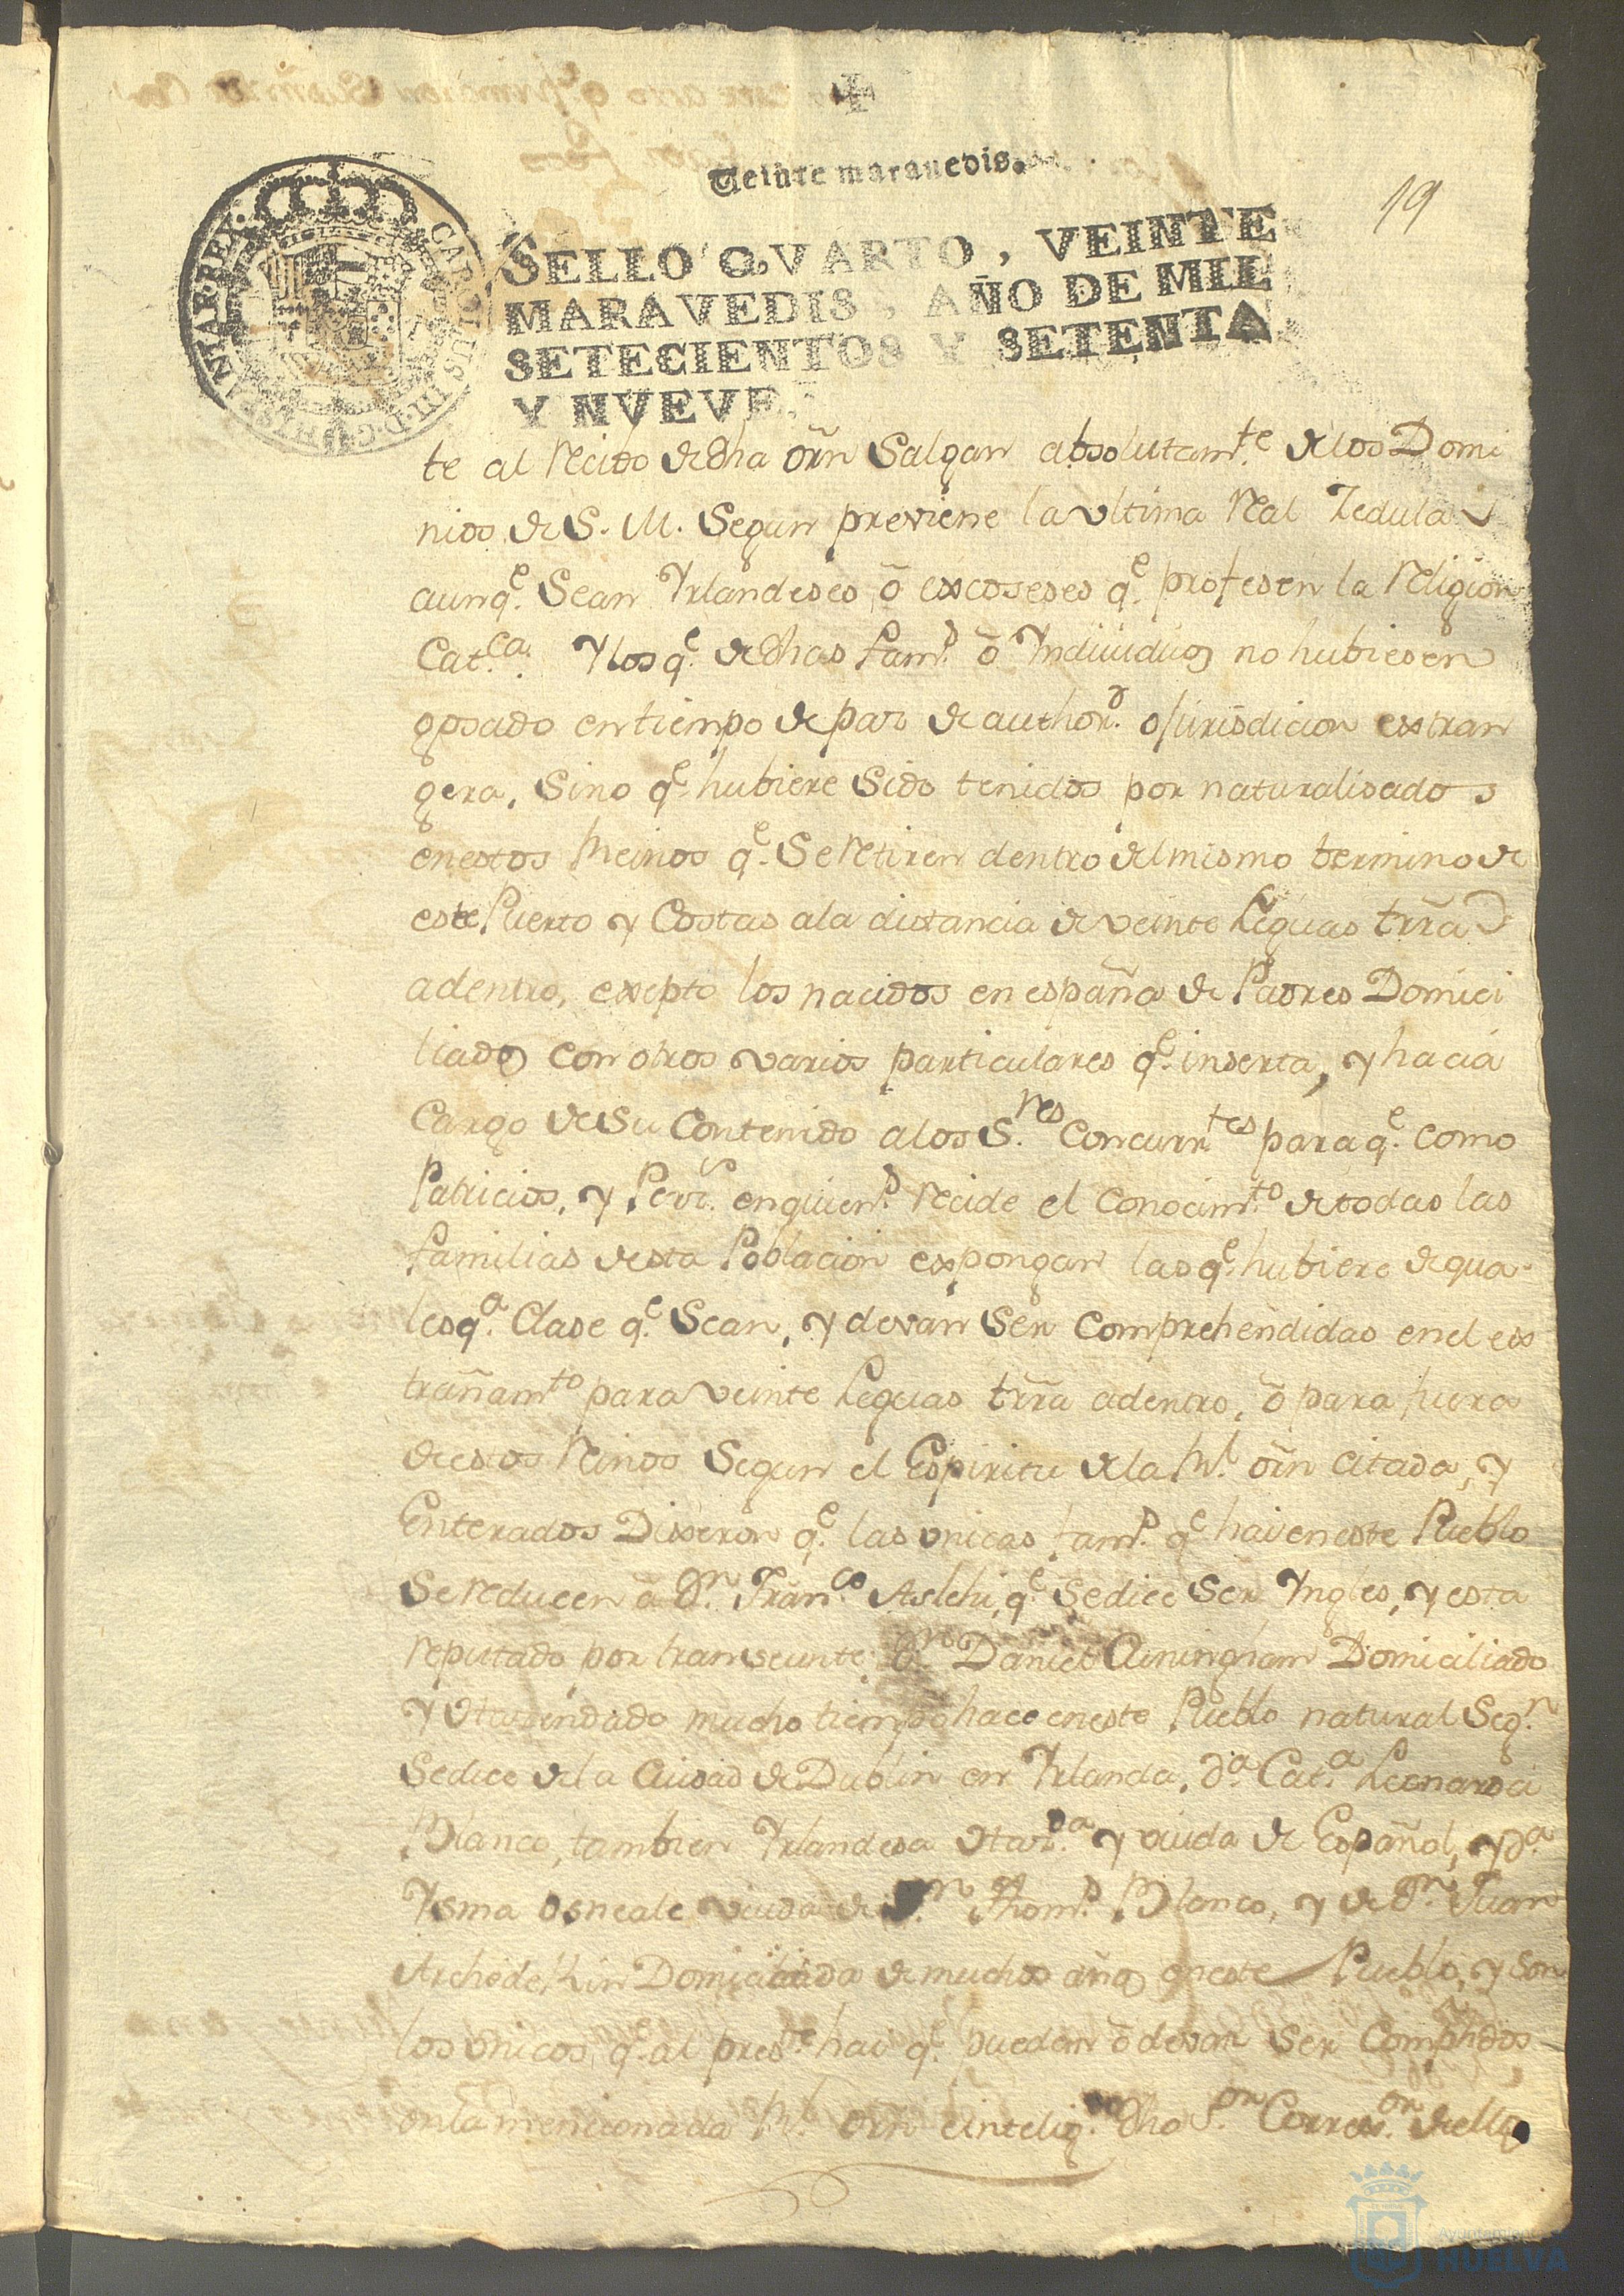 Veinte maravedis.
19
CAROLUS III D G HISPANIAR REX
SELLO QVARTO, VEINTE
MARAVEDIS, AÑO DE MIL
SETECIENTOS Y SETENTA
Y NVEVE.
te al recivo de dha orñ Salgan absolutamte. de los Domi
nios de S. M. Segun previene la vltima Real Zedula
aunqe. Sean Yrlandeses õ excoseses qe. profesen la religion
Catca. Y los qe. de dhas fams. õ Yndiuiduos no hubiesen
gosado en tiempo de paz de authord. o jurisdicion extran
gera, Sino qe. hubiere Sido tenidos por naturalisados
en estos Reinos qe. Se retiren dentro del mismo termino de
este Puerto y Costas ala distancia de veinte Leguas trrã
adentro, exepto los nacidos en españa de Padres Domici
liados con otros varios particulares qe. inserta, y hacia
Cargo de Su Contenido alos S.res Concurrtes. para qe. como
Patricios, y en quiens. recide el Conocimto. de todas las
familias desta Poblacion expongan las qe. hubiere de qua
lesqa. Clase qe. Sean, y devan Ser Comprehendidas en el ex
trañamto. para veinte Leguas trrã adentro, õ para fuera
de estos Reinos Segun el Espiritu de la Rl. orñ citada, y
Enterados Dixeron qe. las vnicas fams. qe. hai en este Pueblo
Se reducen â Dn. Franco. Aslehi, qe. Se dice Ser Yngles, y esta
reputado por transeunte: Dn. Daniel Cuningham Domiciliado
y mucho tiempo hace en este Pueblo natural Segn.
Se dice de la Ciudad de Dublin en Yrlanda. Da. Cata. Leonarda
Blanco, tambien Yrlandesa y viuda de Español, y Da.
Ysma Osneale viuda de Dn. Thoms. Blanco, y de Dn. Juan
Archidekin Domiciliada de muchos años en este Pueblo, y Son
los vnicos, qe. al preste. hai qe. puedan õ devan Ser Comphdos
en la mencionada Rl. orñ e intelig. dho S.or Correxor. de ello
Ayuntamiento
HUELVA